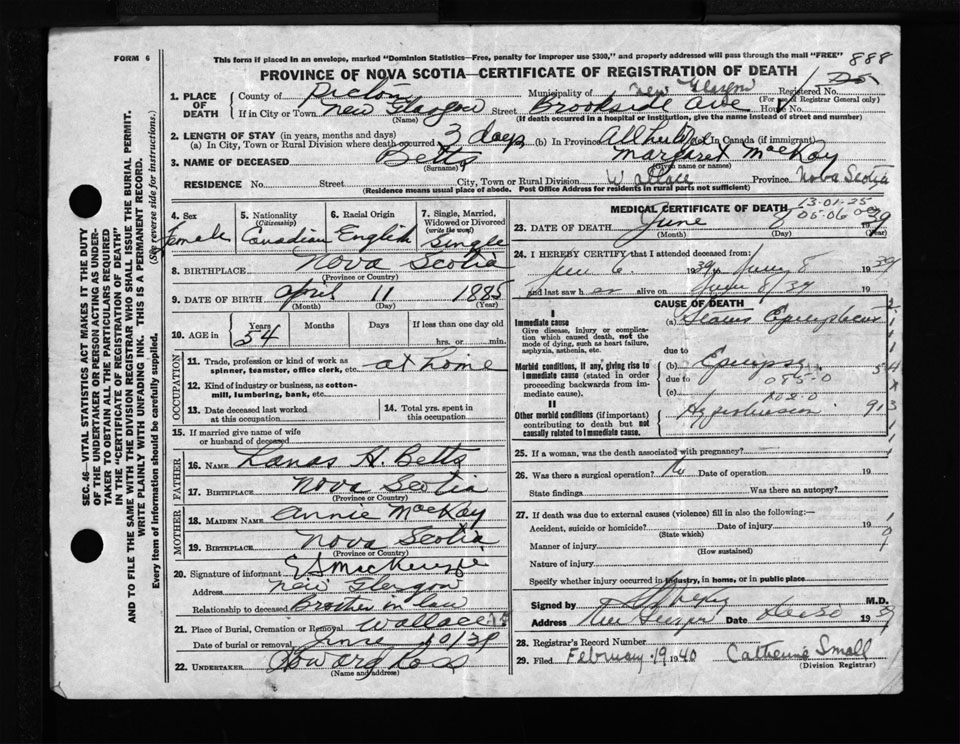 FORM 6
This form if placed in an envelope, marked "Dominion Statistics—Free, penalty for improper use $300," and properly addressed will pass through the mail "FREE" 888
PROVINCE OF NOVA SCOTIA—CERTIFICATE OF REGISTRATION OF DEATH
1. PLACE OF DEATH
County of Pictou Municipality of New Glasgow Registered No.
(For use of Registrar General only)
If in City or Town New Glasgow Street Brookside Ave House No.
(Name) (If death occurred in a hospital or institution, give the name instead of street and number)
2. LENGTH OF STAY (in years, months and days)
(a) In City, Town or Rural Division where death occurred 3 days (b) In Province All her life (c) In Canada (if immigrant)
3. NAME OF DECEASED Betts Margaret MacKay
(Surname) (Given name or names)
RESIDENCE No. Street City, Town or Rural Division Wallace Province Nova Scotia
(Residence means usual place of abode. Post Office Address for residents in rural parts not sufficient)
4. Sex Female
5. Nationality (Citizenship) Canadian
6. Racial Origin English
7. Single, Married, Widowed or Divorced (write the word) Single
8. BIRTHPLACE Nova Scotia
(Province or Country)
9. DATE OF BIRTH April 11 1885
(Month) (Day) (Year)
10. AGE in Years Months Days If less than one day old
54 hrs. or min.
OCCUPATION
11. Trade, profession or kind of work as spinner, teamster, office clerk, etc. at home
12. Kind of industry or business, as cotton-mill, lumbering, bank, etc.
13. Date deceased last worked at this occupation
14. Total yrs. spent in this occupation
15. If married give name of wife or husband of deceased
FATHER
16. NAME H. Betts
17. BIRTHPLACE Nova Scotia
(Province or Country)
MOTHER
18. MAIDEN NAME Annie MacKay
19. BIRTHPLACE Nova Scotia
(Province or Country)
20. Signature of informant MacKenzie
Address New Glasgow
Relationship to deceased Brother in law
21. Place of Burial, Cremation or Removal Wallace
Date of burial or removal June 10/39
22. UNDERTAKER Howard Ross
(Name and address)
MEDICAL CERTIFICATE OF DEATH
13-01-25
05-06
23. DATE OF DEATH June 8 1939
(Month) (Day) (Year)
24. I HEREBY CERTIFY that I attended deceased from:
June 6 1939 June 8 1939
and last saw her alive on June 8/39
CAUSE OF DEATH
I
Immediate cause
Give disease, injury or complication which caused death, not the mode of dying, such as heart failure, asphyxia, asthenia, etc.
(a) Status Epilepticus
due to
Morbid conditions, if any, giving rise to immediate cause (stated in order proceeding backwards from immediate cause).
(b) Epilepsy
due to 085.0
(c)
II
Other morbid conditions (if important) contributing to death but not causally related to immediate cause.
Hypertension
25. If a woman, was the death associated with pregnancy?
26. Was there a surgical operation? No Date of operation 19
State findings Was there an autopsy?
27. If death was due to external causes (violence) fill in also the following:—
Accident, suicide or homicide? Date of injury 19
(State which)
Manner of injury
(How sustained)
Nature of injury
Specify whether injury occurred in industry, in home, or in public place
Signed by M.D.
Address New Glasgow Date Dec 30 1939
28. Registrar's Record Number
29. Filed February 19 1940 Catherine Small
(Division Registrar)
SEC. 46—VITAL STATISTICS ACT MAKES IT THE DUTY
OF THE UNDERTAKER OR PERSON ACTING AS UNDER-
TAKER TO OBTAIN ALL THE PARTICULARS REQUIRED
IN THE "CERTIFICATE OF REGISTRATION OF DEATH"
AND TO FILE THE SAME WITH THE DIVISION REGISTRAR WHO SHALL ISSUE THE BURIAL PERMIT.
WRITE PLAINLY WITH UNFADING INK. THIS IS A PERMANENT RECORD.
Every item of information should be carefully supplied. (See reverse side for instructions.)